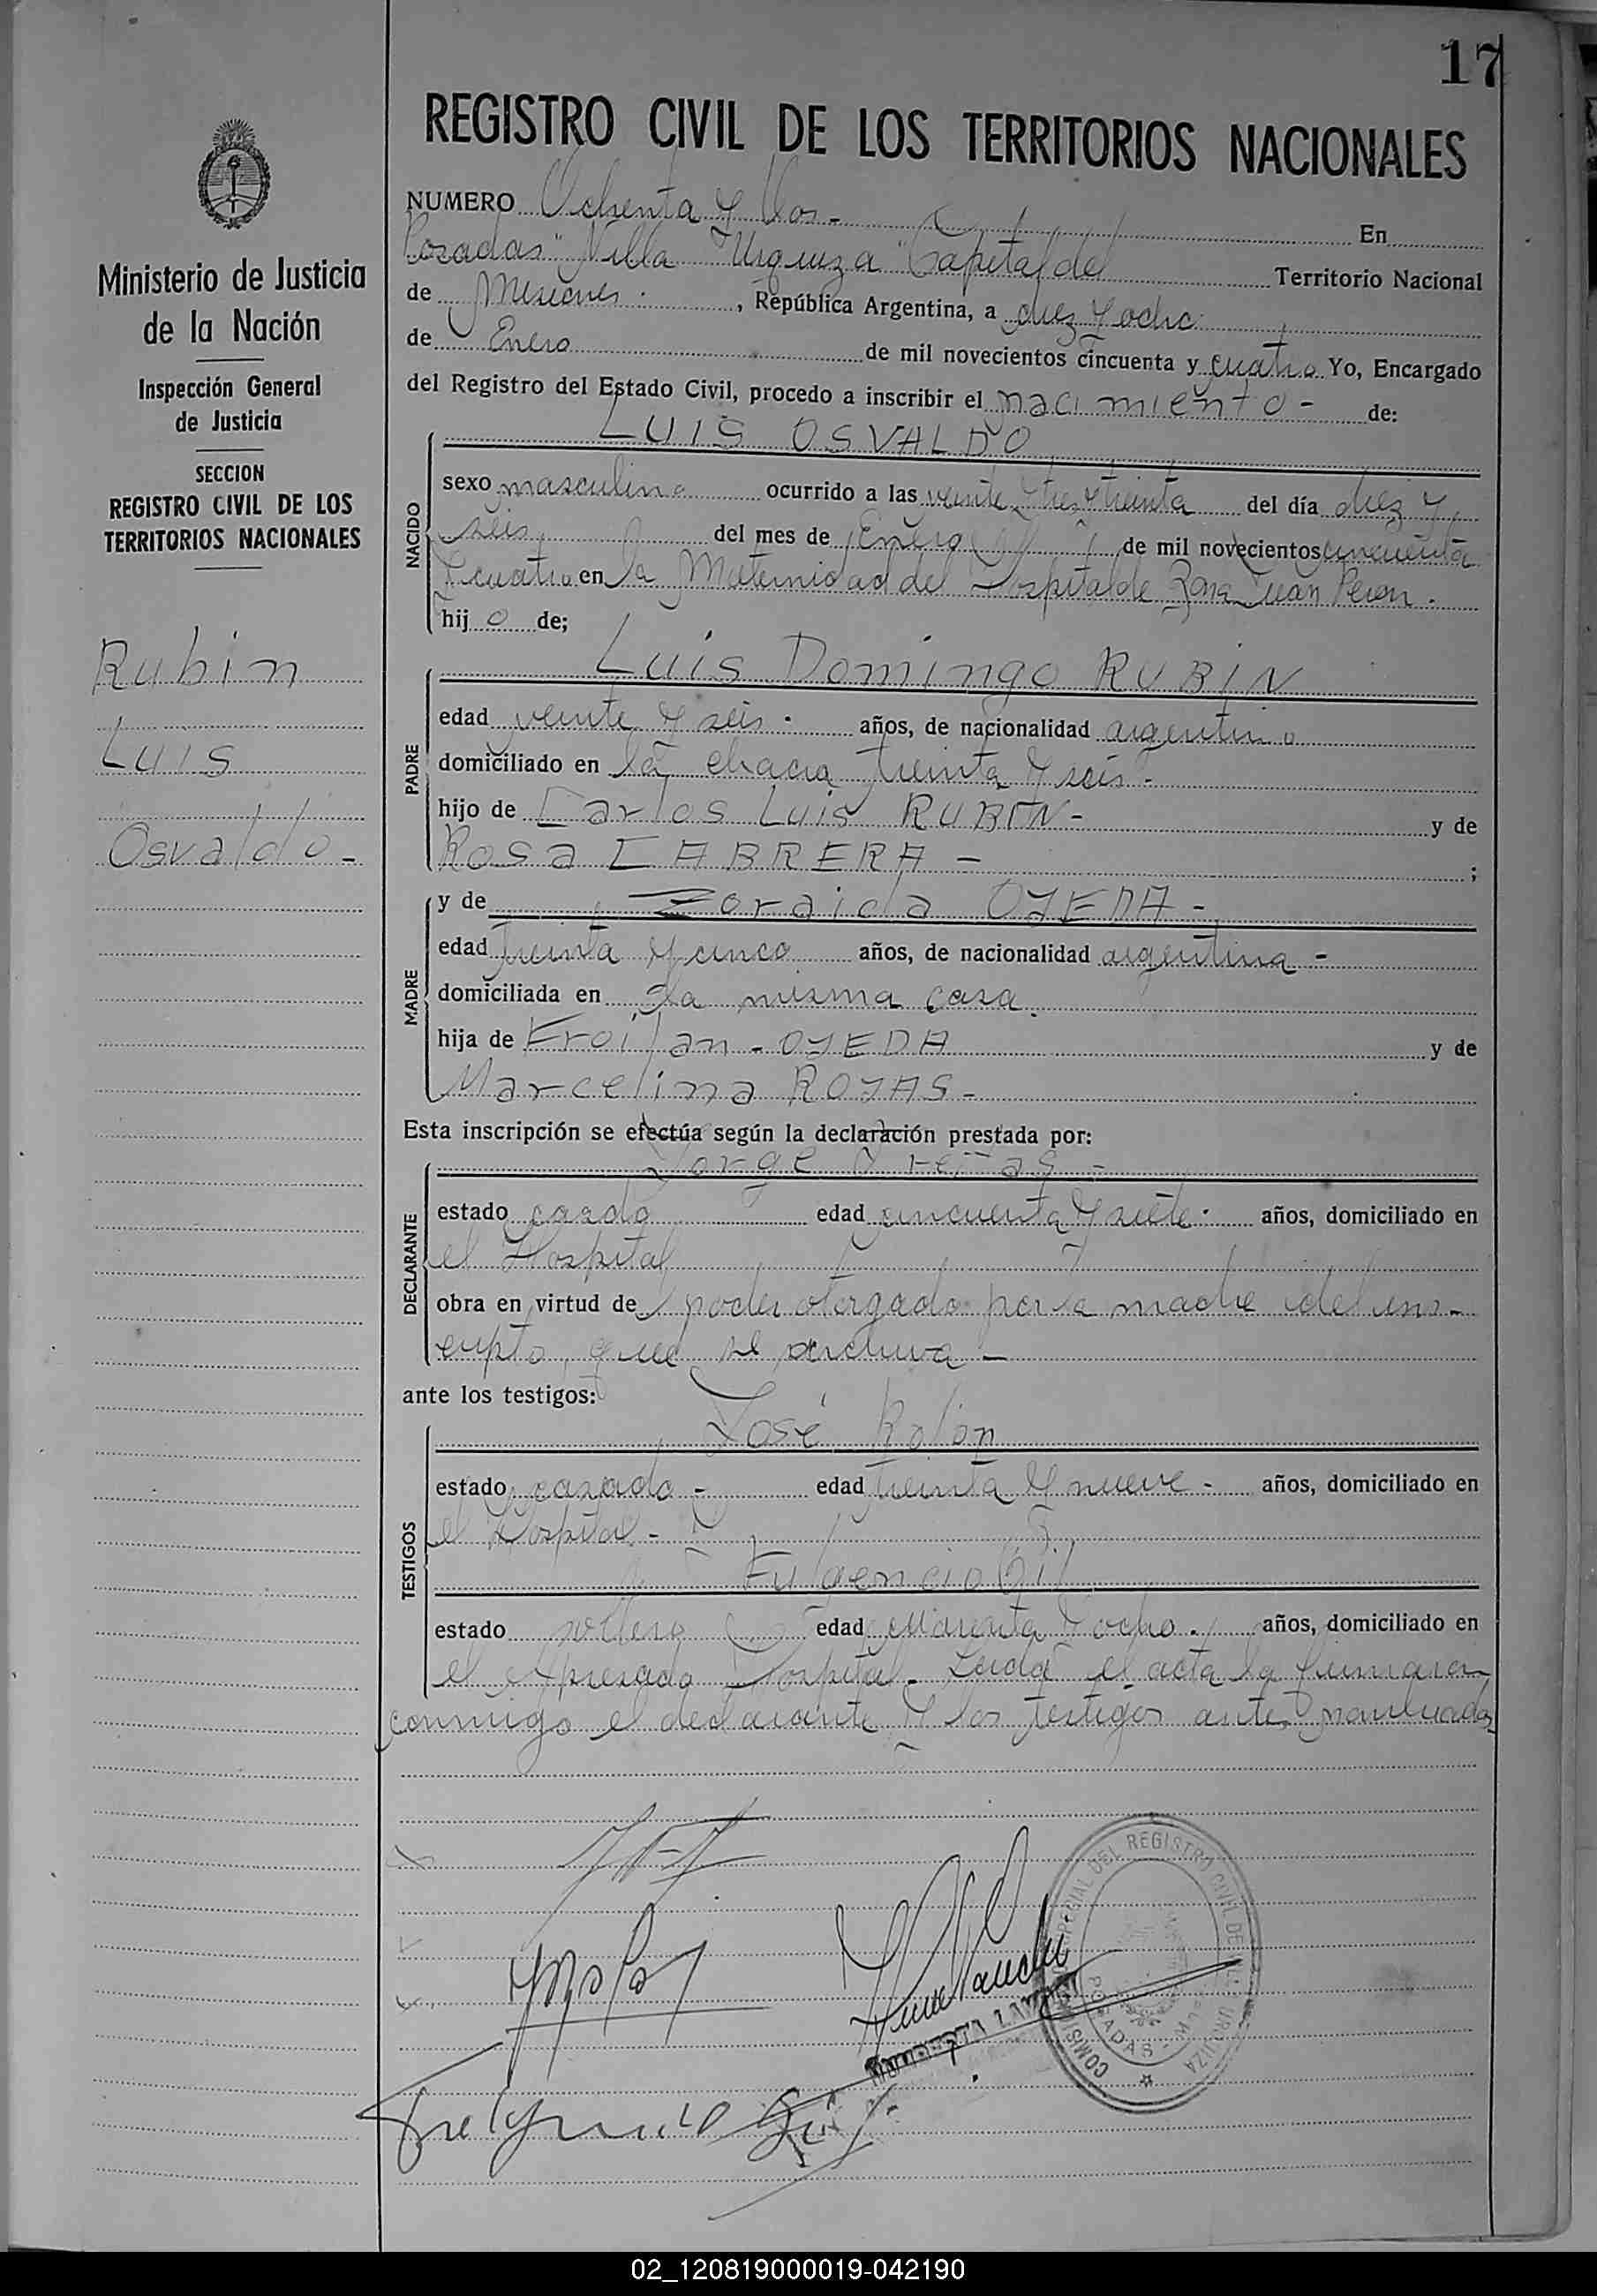 17
REGISTRO CIVIL DE LOS TERRITORIOS NACIONALES
Ministerio de Justicia
de la Nación
Inspección General
de Justicia
SECCION
REGISTRO CIVIL DE LOS
TERRITORIOS NACIONALES
Rubin
Luis
Osvaldo -
NUMERO Ochenta y Dos - En
Posadas "Villa Urquiza" Capital del Territorio Nacional
de Misiones , República Argentina, a diez y ocho
de Enero de mil novecientos cincuenta y cuatro Yo, Encargado
del Registro del Estado Civil, procedo a inscribir el nacimiento - de:
NACIDO
LUIS OSVALDO
sexo masculino ocurrido a las veinte y tres y treinta del día diez y
seis del mes de Enero de mil novecientos cincuenta
y cuatro en la Maternidad del Hospital de Zona Juan Peron.
hijo de;
PADRE
Luis Domingo RUBIN
edad veinte y seis. años, de nacionalidad argentino
domiciliado en la chacra treinta y seis -
hijo de Carlos Luis RUBIN - y de
Rosa CABRERA - ;
MADRE
y de Zoraida OJEDA -
edad treinta y cinco años, de nacionalidad argentina -
domiciliada en la misma casa.
hija de Froilan - OJEDA y de
Marcelina ROJAS -
Esta inscripción se efectúa según la declaración prestada por:
DECLARANTE
Jorge -
estado casado edad cincuenta y siete. años, domiciliado en
el Hospital
obra en virtud de poder otorgado por la madre del ins-
cripto, que se archiva -
ante los testigos:
TESTIGOS
José Rolón
estado casado - edad treinta y nueve - años, domiciliado en
el Hospital -
Fulgencio Gil
estado soltero edad cuarenta y ocho. años, domiciliado en
el expresado Hospital - Leida el acta la firmaron
conmigo el declarante y los testigos antes nombrados
Fulgencio Gil
DEL REGISTRO CIVIL DE
URQUIZA
POSADAS
02_120819000019-042190